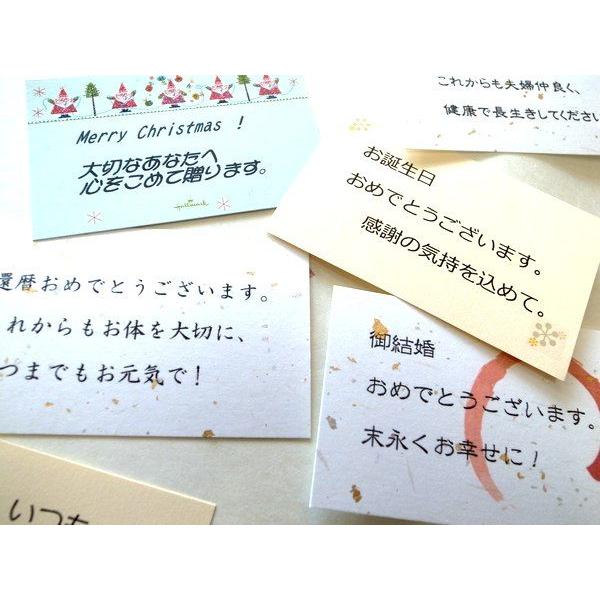 Merry Christmas !
大切なあなたへ
心をこめて贈ります。
Hallmark
これからも夫婦仲良く、
健康で長生きしてください
お誕生日
おめでとうございます。
感謝の気持を込めて。
還暦おめでとうございます。
れからもお体を大切に、
つまでもお元気で!
御結婚
おめでとうございます。
末永くお幸せに!
いつも